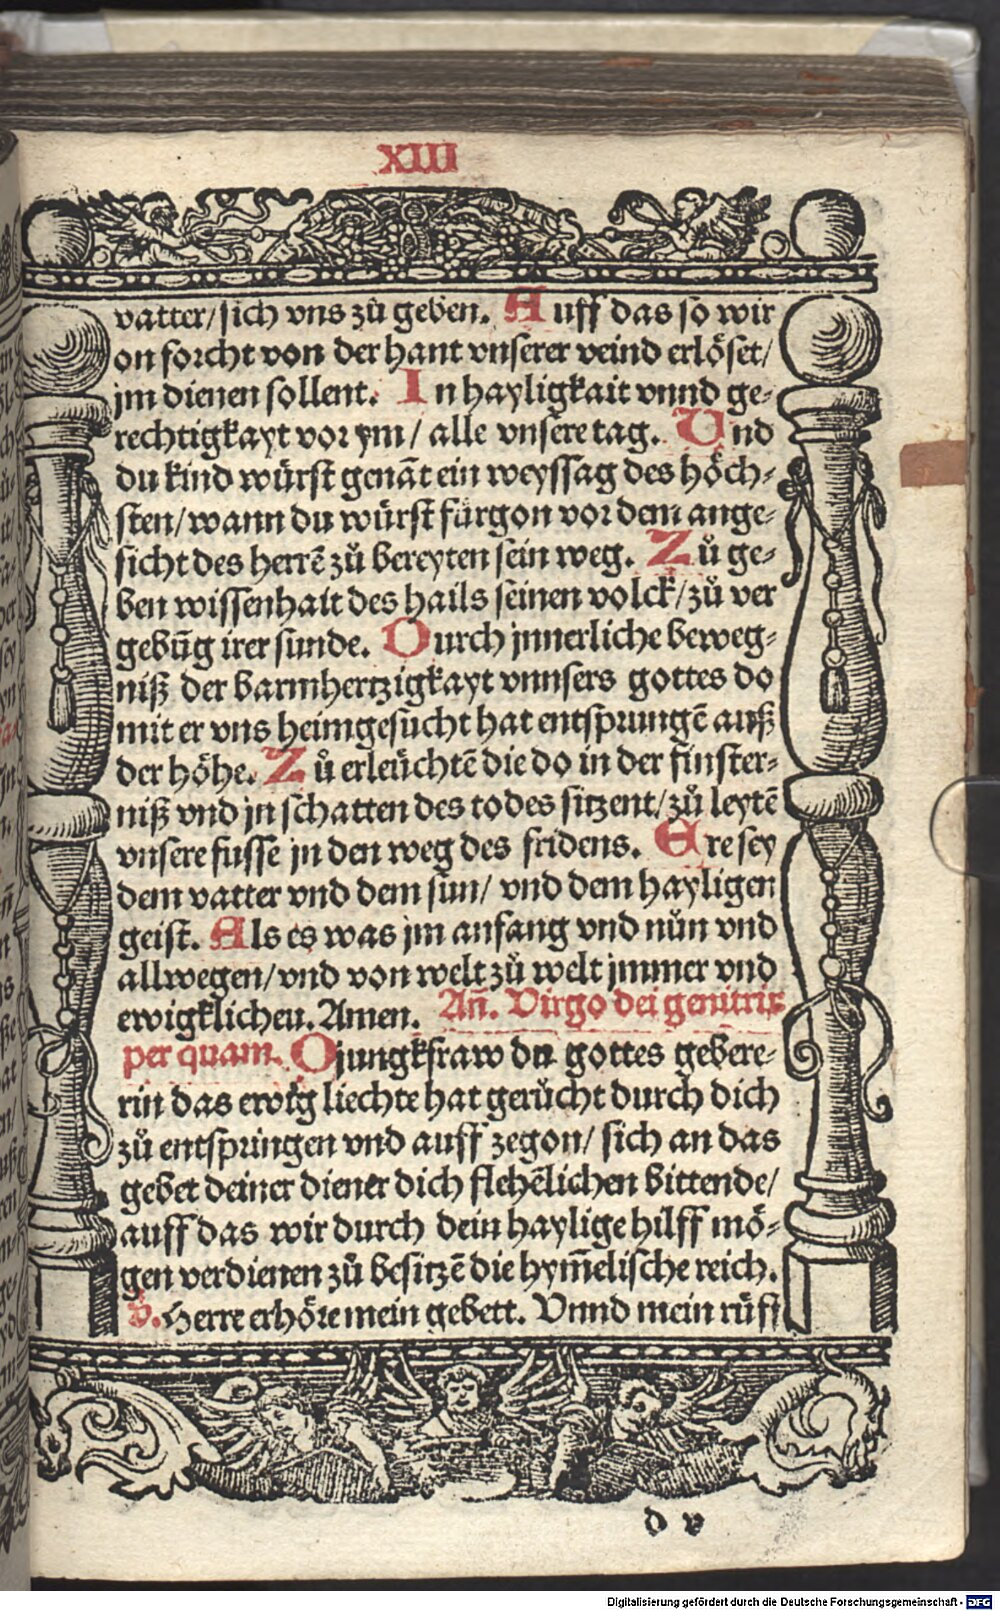 XIII
vatter/sich vns zů geben. Auff das so wir
on forcht von der hant vnserer veind erlöset/
jm dienen sollent. In hayligkait vnnd ge⸗
rechtigkayt vor ym/ alle vnsere tag. Vnd
du kind würst genãt ein weyssag des höch⸗
sten/wann du würst fürgon vor dem ange⸗
sicht des herrẽ zů bereyten sein weg. Zů ge⸗
ben wissenhait des hails seinen volck/zů ver
gebũg irer sunde. Durch jnnerliche beweg⸗
niß der barmhertzigkayt vnnsers gottes do
mit er vns heimgesucht hat entsprungẽ auß
der höhe. Zů erleüchtẽ die do in der finster⸗
niß vnd jn schatten des todes sitzent/zů leytẽ
vnsere fusse jn den weg des fridens. Ere sey
dem vatter vnd dem sun/ vnd dem hayligen
geist. Als es was jm anfang vnd nůn vnd
allwegen/vnd von welt zů welt jmmer vnd
ewigklichen. Amen. Añ. Virgo dei genitrix
per quam. O jungkfraw du gottes gebere⸗
rin das ewig liechte hat gerůcht durch dich
zů entspringen vnd auff zegon/ sich an das
gebet deiner diener dich flehẽlichen bittende/
auff das wir durch dein haylige hilff mö⸗
gen verdienen zů besitzẽ die hym̃elische reich.
v. Herre erhöre mein gebett. Vnnd mein rüff
d v
Digitalisierung gefördert durch die Deutsche Forschungsgemeinschaft - DFG